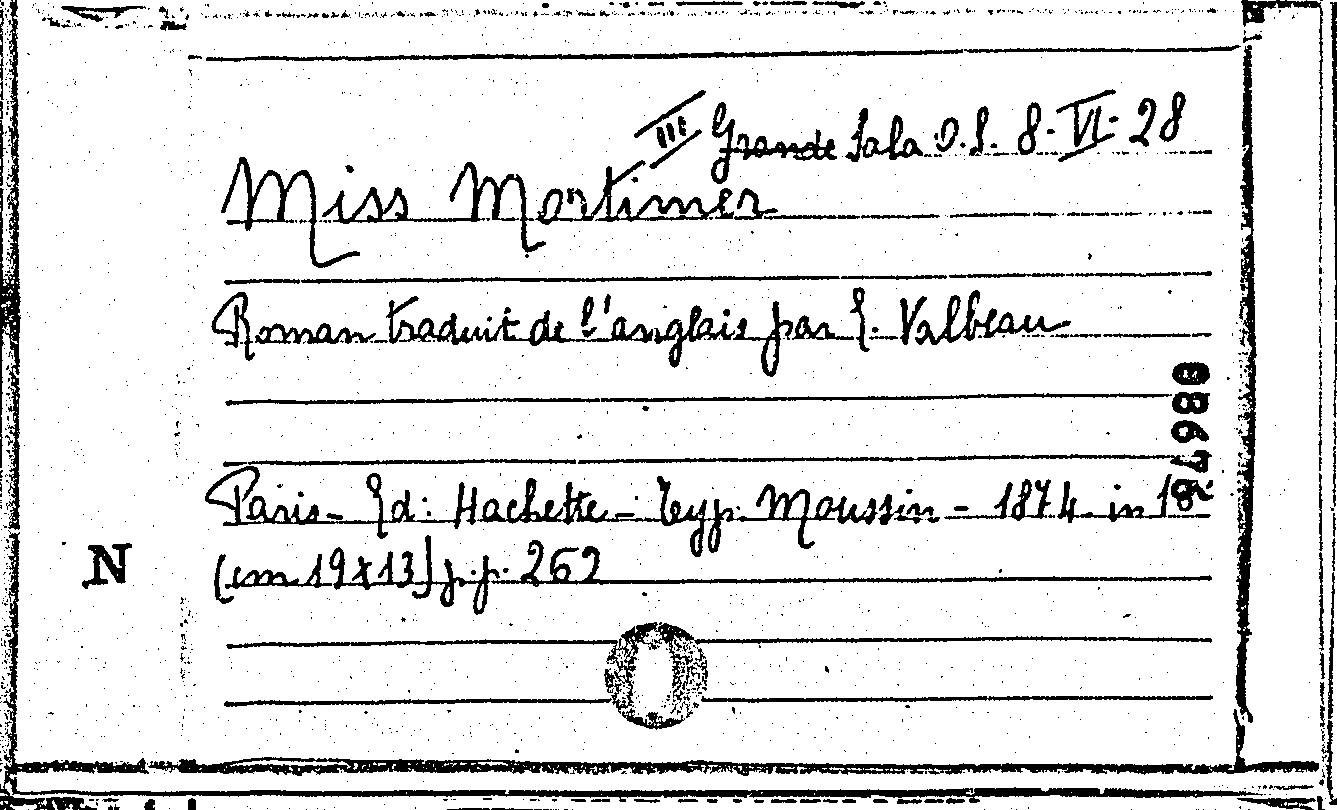 III Grande Sala O.S. 8-VI-28
Miss Mortimer
Roman traduit de l'anglais par E. Valbeau
08678
Paris - Ed: Hachette - Typ. Moussin - 1874 in
N
(cm 19x13) p.p. 262